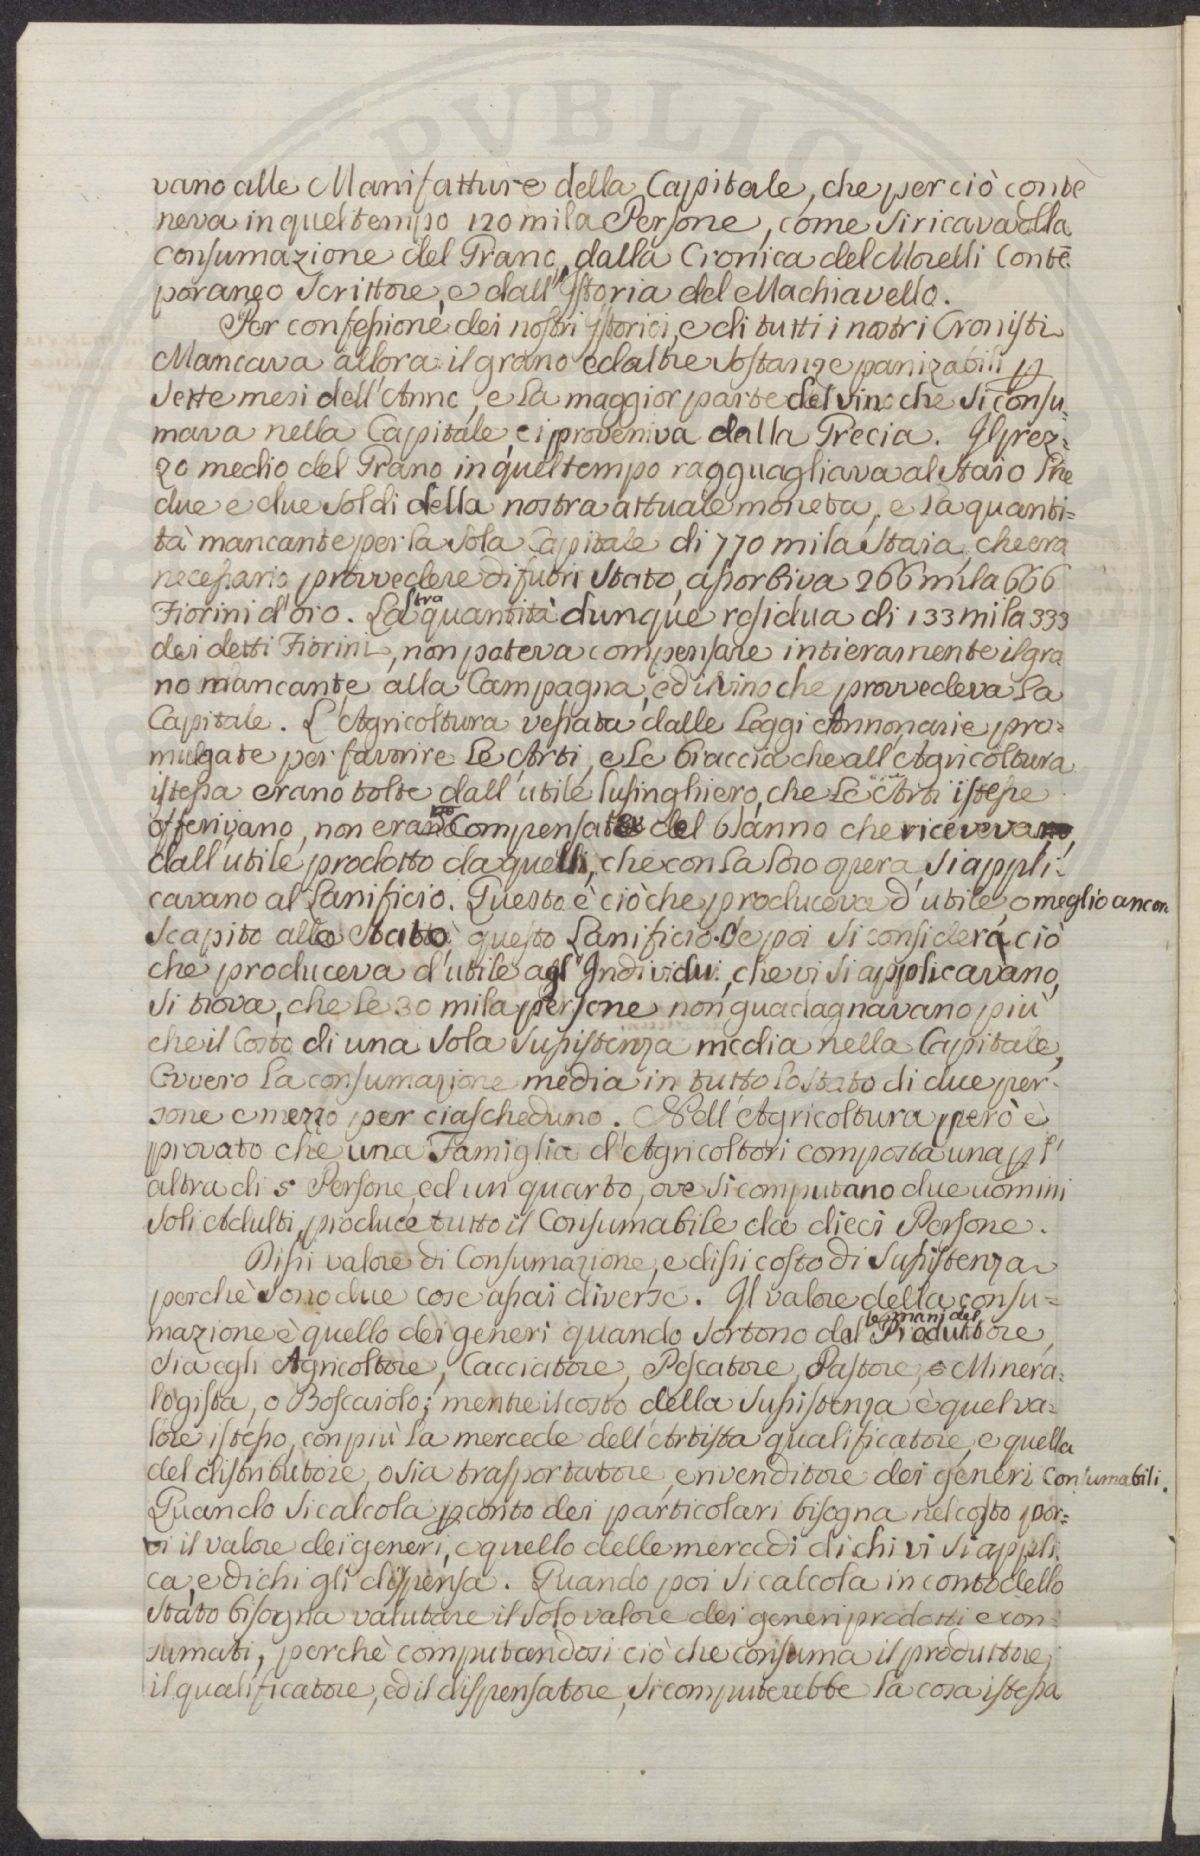 vano alle Manifatture della Capitale, che perciò conte
neva in quel tempo 120 mila Persone, come si ricava dalla
consumazione del Grano, dalla Cronica del Morelli Contē
poraneo Scrittore, e dall'Istoria del Machiavello.
Per confessione dei nostri Istorici, e di tutti i nostri Cronisti
Mancava allora il grano ed altre sostanze panizabili p
sette mesi dell'Anno, e la maggior parte del vino che si consu-
mava nella Capitale ci proveniva dalla Grecia. Il prez-
zo medio del Grano in quel tempo ragguagliava al staio lire
due e due soldi della nostra attuale moneta, e la quanti=
tà mancante per la sola Capitale di 770 mila staia, che era
necessario provvedere di fuori stato, assorbiva 266 mila 666
Fiorini d'oro. L'altra quantità dunque residua di 133 mila 333
dei detti Fiorini, non poteva compensare intieramente il gra
no mancante alla Campagna, ed il vino che provvedeva la
Capitale. L'Agricoltura vessata dalle Leggi Annonarie pro=
mulgate per favorire le Arti, e le braccia che all'Agricoltura
istessa erano tolte dall'utile lusinghiero, che le Arti istesse
offerivano, non erano compensate del danno che ricevevano
dall'utile prodotto da quelli, che con la loro opera si appli-
cavano al Lanificio. Questo è ciò che produceva d'utile, o meglio ancor
scapito allo Stato questo Lanificio. Se poi si considera ciò
che produceva d'utile agl'Individui, che vi si applicavano,
si trova, che le 30 mila persone non guadagnavano più
che il Costo di una sola sussistenza media nella Capitale,
Ovvero la consumazione media in tutto lo stato di due per-
sone e mezzo per ciascheduno. Nell'Agricoltura però è
provato che una Famiglia d'Agricoltori composta una p l'
altra di 5 Persone, ed un quarto, ove si computano due uomini
soli Adulti, produce tutto il Consumabile da dieci Persone.
Dissi valore di Consumazione, e dissi costo di sussistenza
perchè sono due cose assai diverse. Il valore della consu=
mazione è quello dei generi quando sortono dalle mani del Produttore,
sia egli Agricoltore, Cacciatore, Pescatore, Pastore, o Minera-
logista, o Boscaiolo; mentre il costo della sussistenza è quel va=
lore istesso, con più la mercede dell'Artista qualificatore, e quella
del distributore, o sia trasportatore, e rivenditore dei generi consumabili.
Quando si calcola p conto dei particolari bisogna nel costo por=
vi il valore dei generi, e quello delle mercedi di chi vi si appli-
ca, e di chi gli dispensa. Quando poi si calcola in conto dello
stato bisogna valutare il solo valore dei generi prodotti e con-
sumati, perchè computandosi ciò che consuma il produttore,
il qualificatore, ed il dispensatore, si computerebbe la cosa istessa
PVBLIC